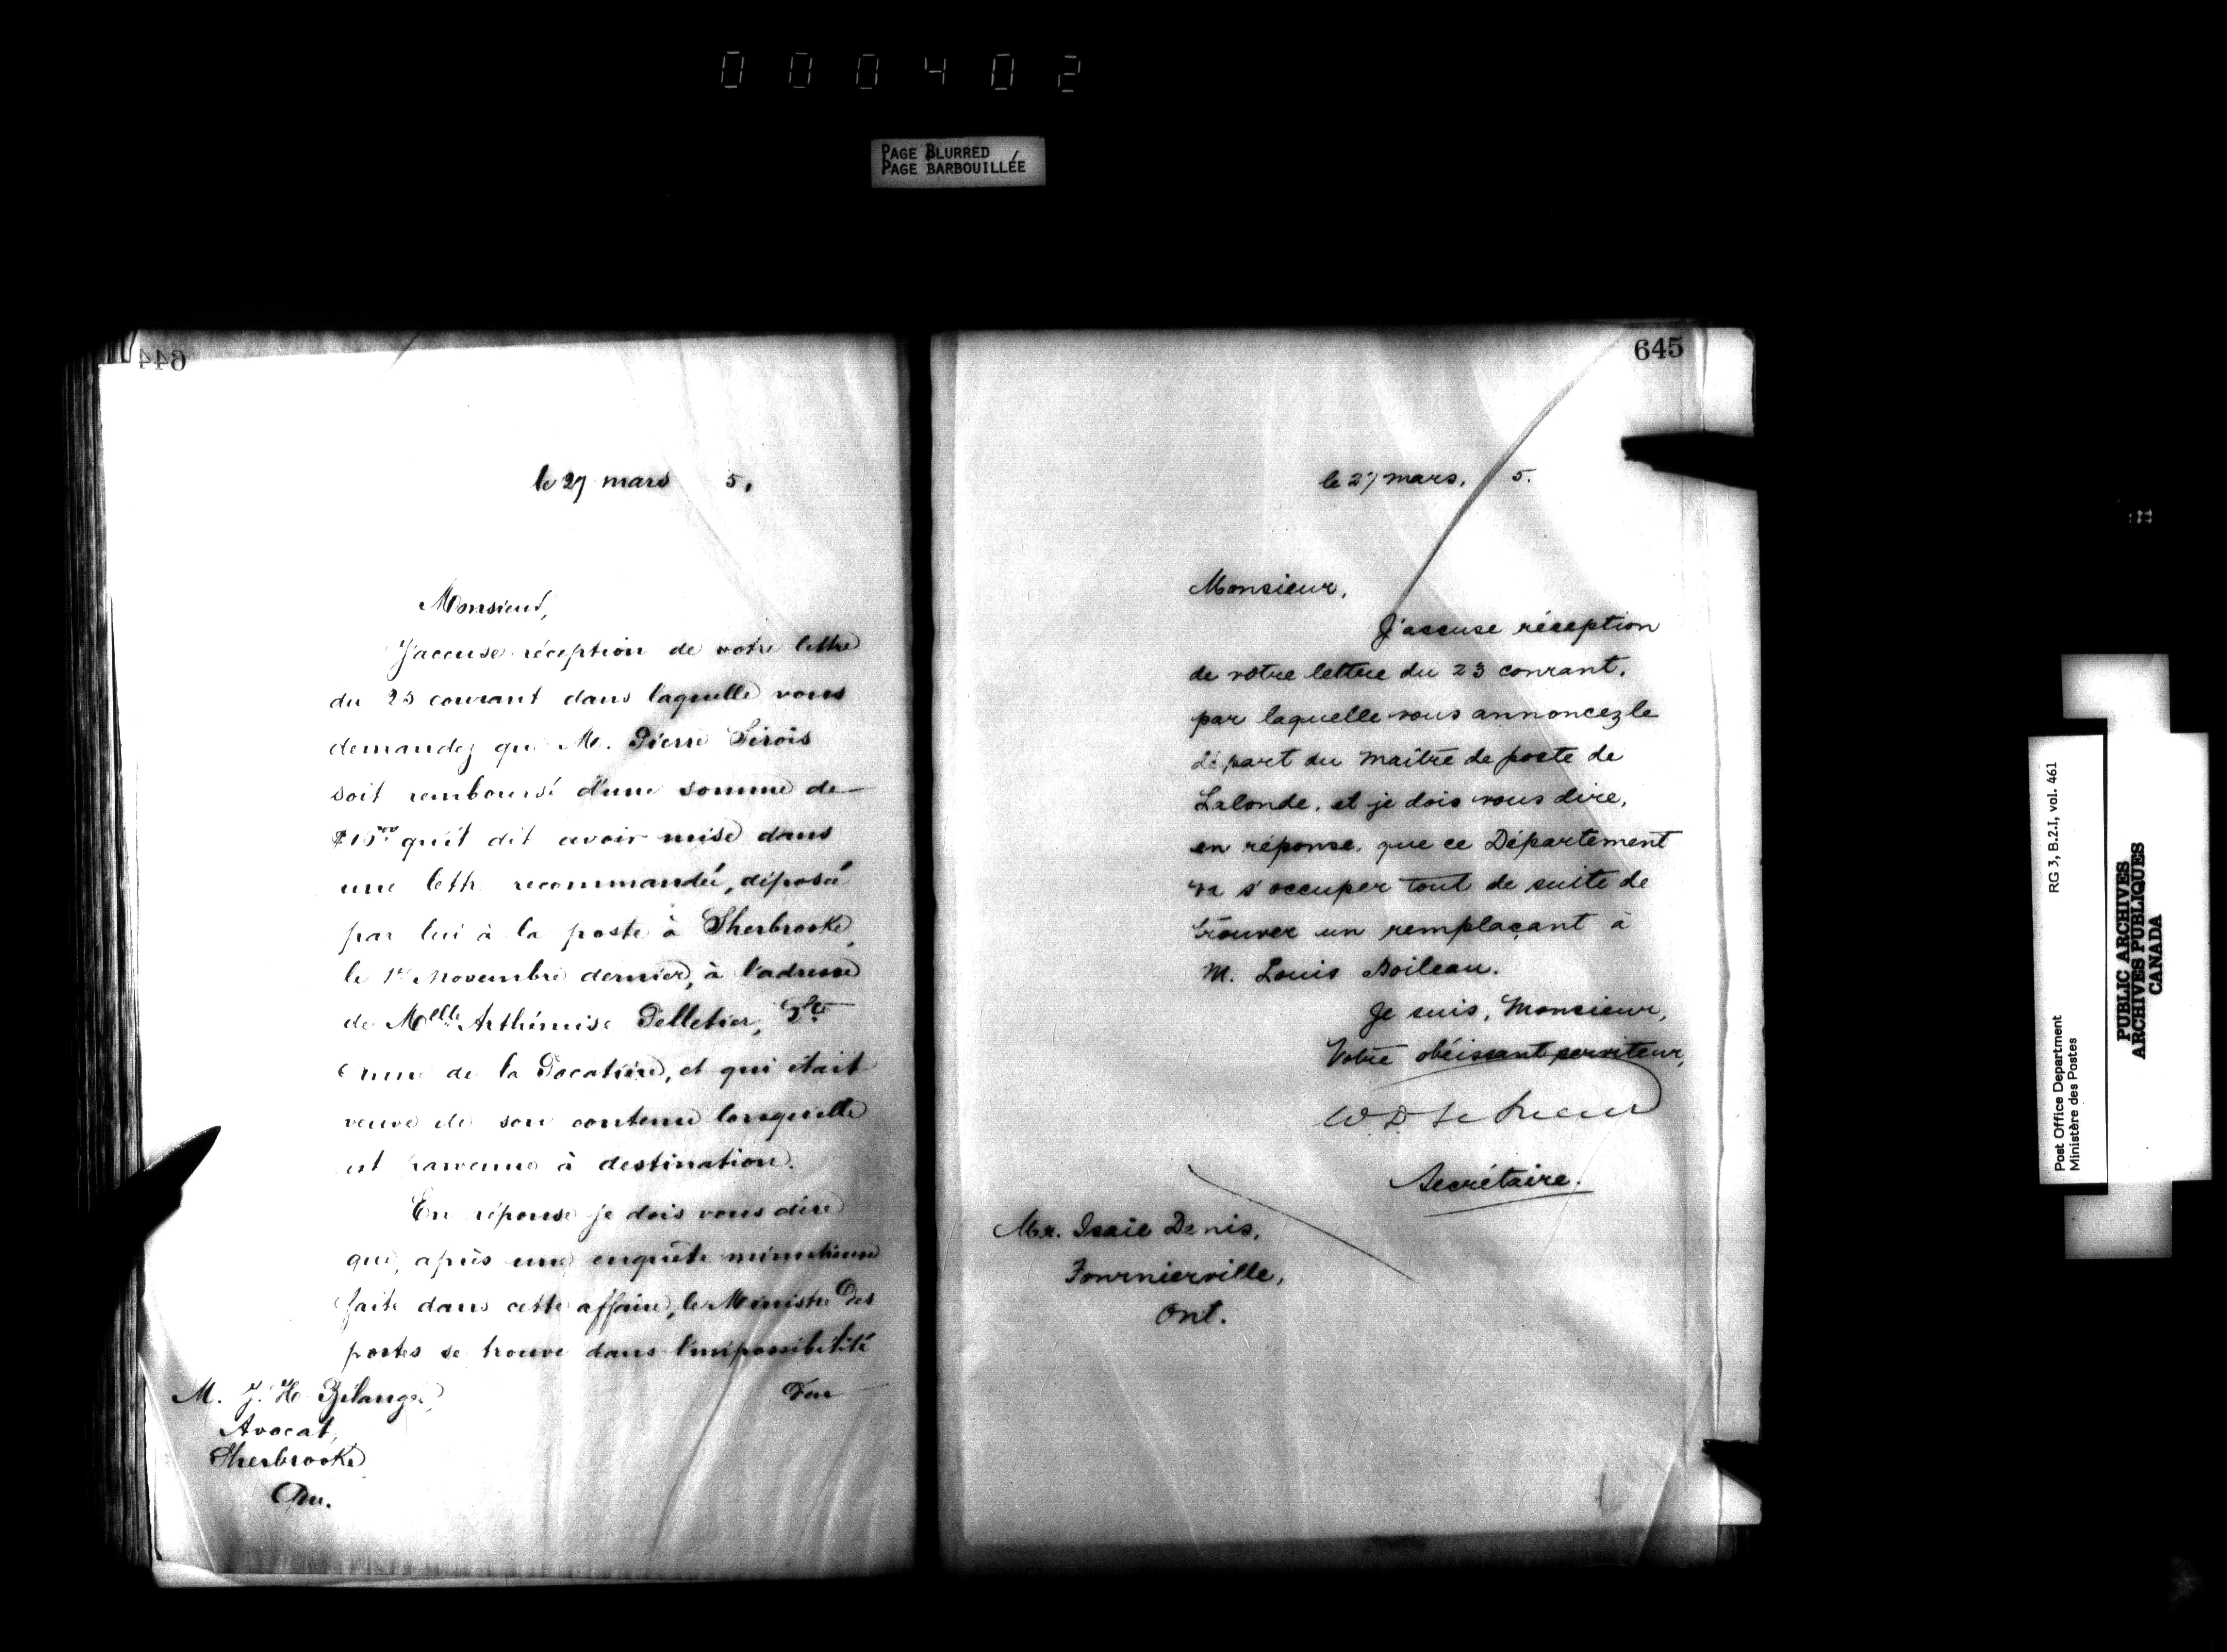 000402
PAGE BLURRED
PAGE BARBOUILLÉE
644
le 27 mars 5.
Monsieur,
J'accuse réception de votre lettre
du 25 courant dans laquelle vous
demandez que M. Pierre Sirois
soit remboursé d'une somme de
qu'il dit avoir mise dans
une lettre recommandée, déposée
par lui à la poste à Sherbrooke,
le 1er Novembre dernier, à l'adresse
de Melle Arthémise Pelletier, Ste
Anne de la Pocatière, et qui était
veuve de son contenu lorsqu'elle
est parvenue à destination.
En réponse je dois vous dire
que, après une enquête minutieuse
faite dans cette affaire, le Ministre Des
postes se trouve dans l'impossibilité
M. J. H. Bélanger,
Avocat,
Sherbrooke
Que.
645
le 27 mars, 5.
Monsieur,
J'accuse réception
de votre lettre du 23 courant,
par laquelle vous annoncez le
départ du maître de poste de
Lalonde, et je dois vous dire,
en réponse, que ce Département
va s'occuper tout de suite de
trouver un remplaçant à
M. Louis Boileau.
Je suis, Monsieur,
Votre obéissant serviteur,
W D LeSueur
Secrétaire.
Mr. Isaie Denis,
Fournierville,
Ont.
RG 3, B.2.I, vol. 461
Post Office Department
Ministère des Postes
PUBLIC ARCHIVES
ARCHIVES PUBLIQUES
CANADA